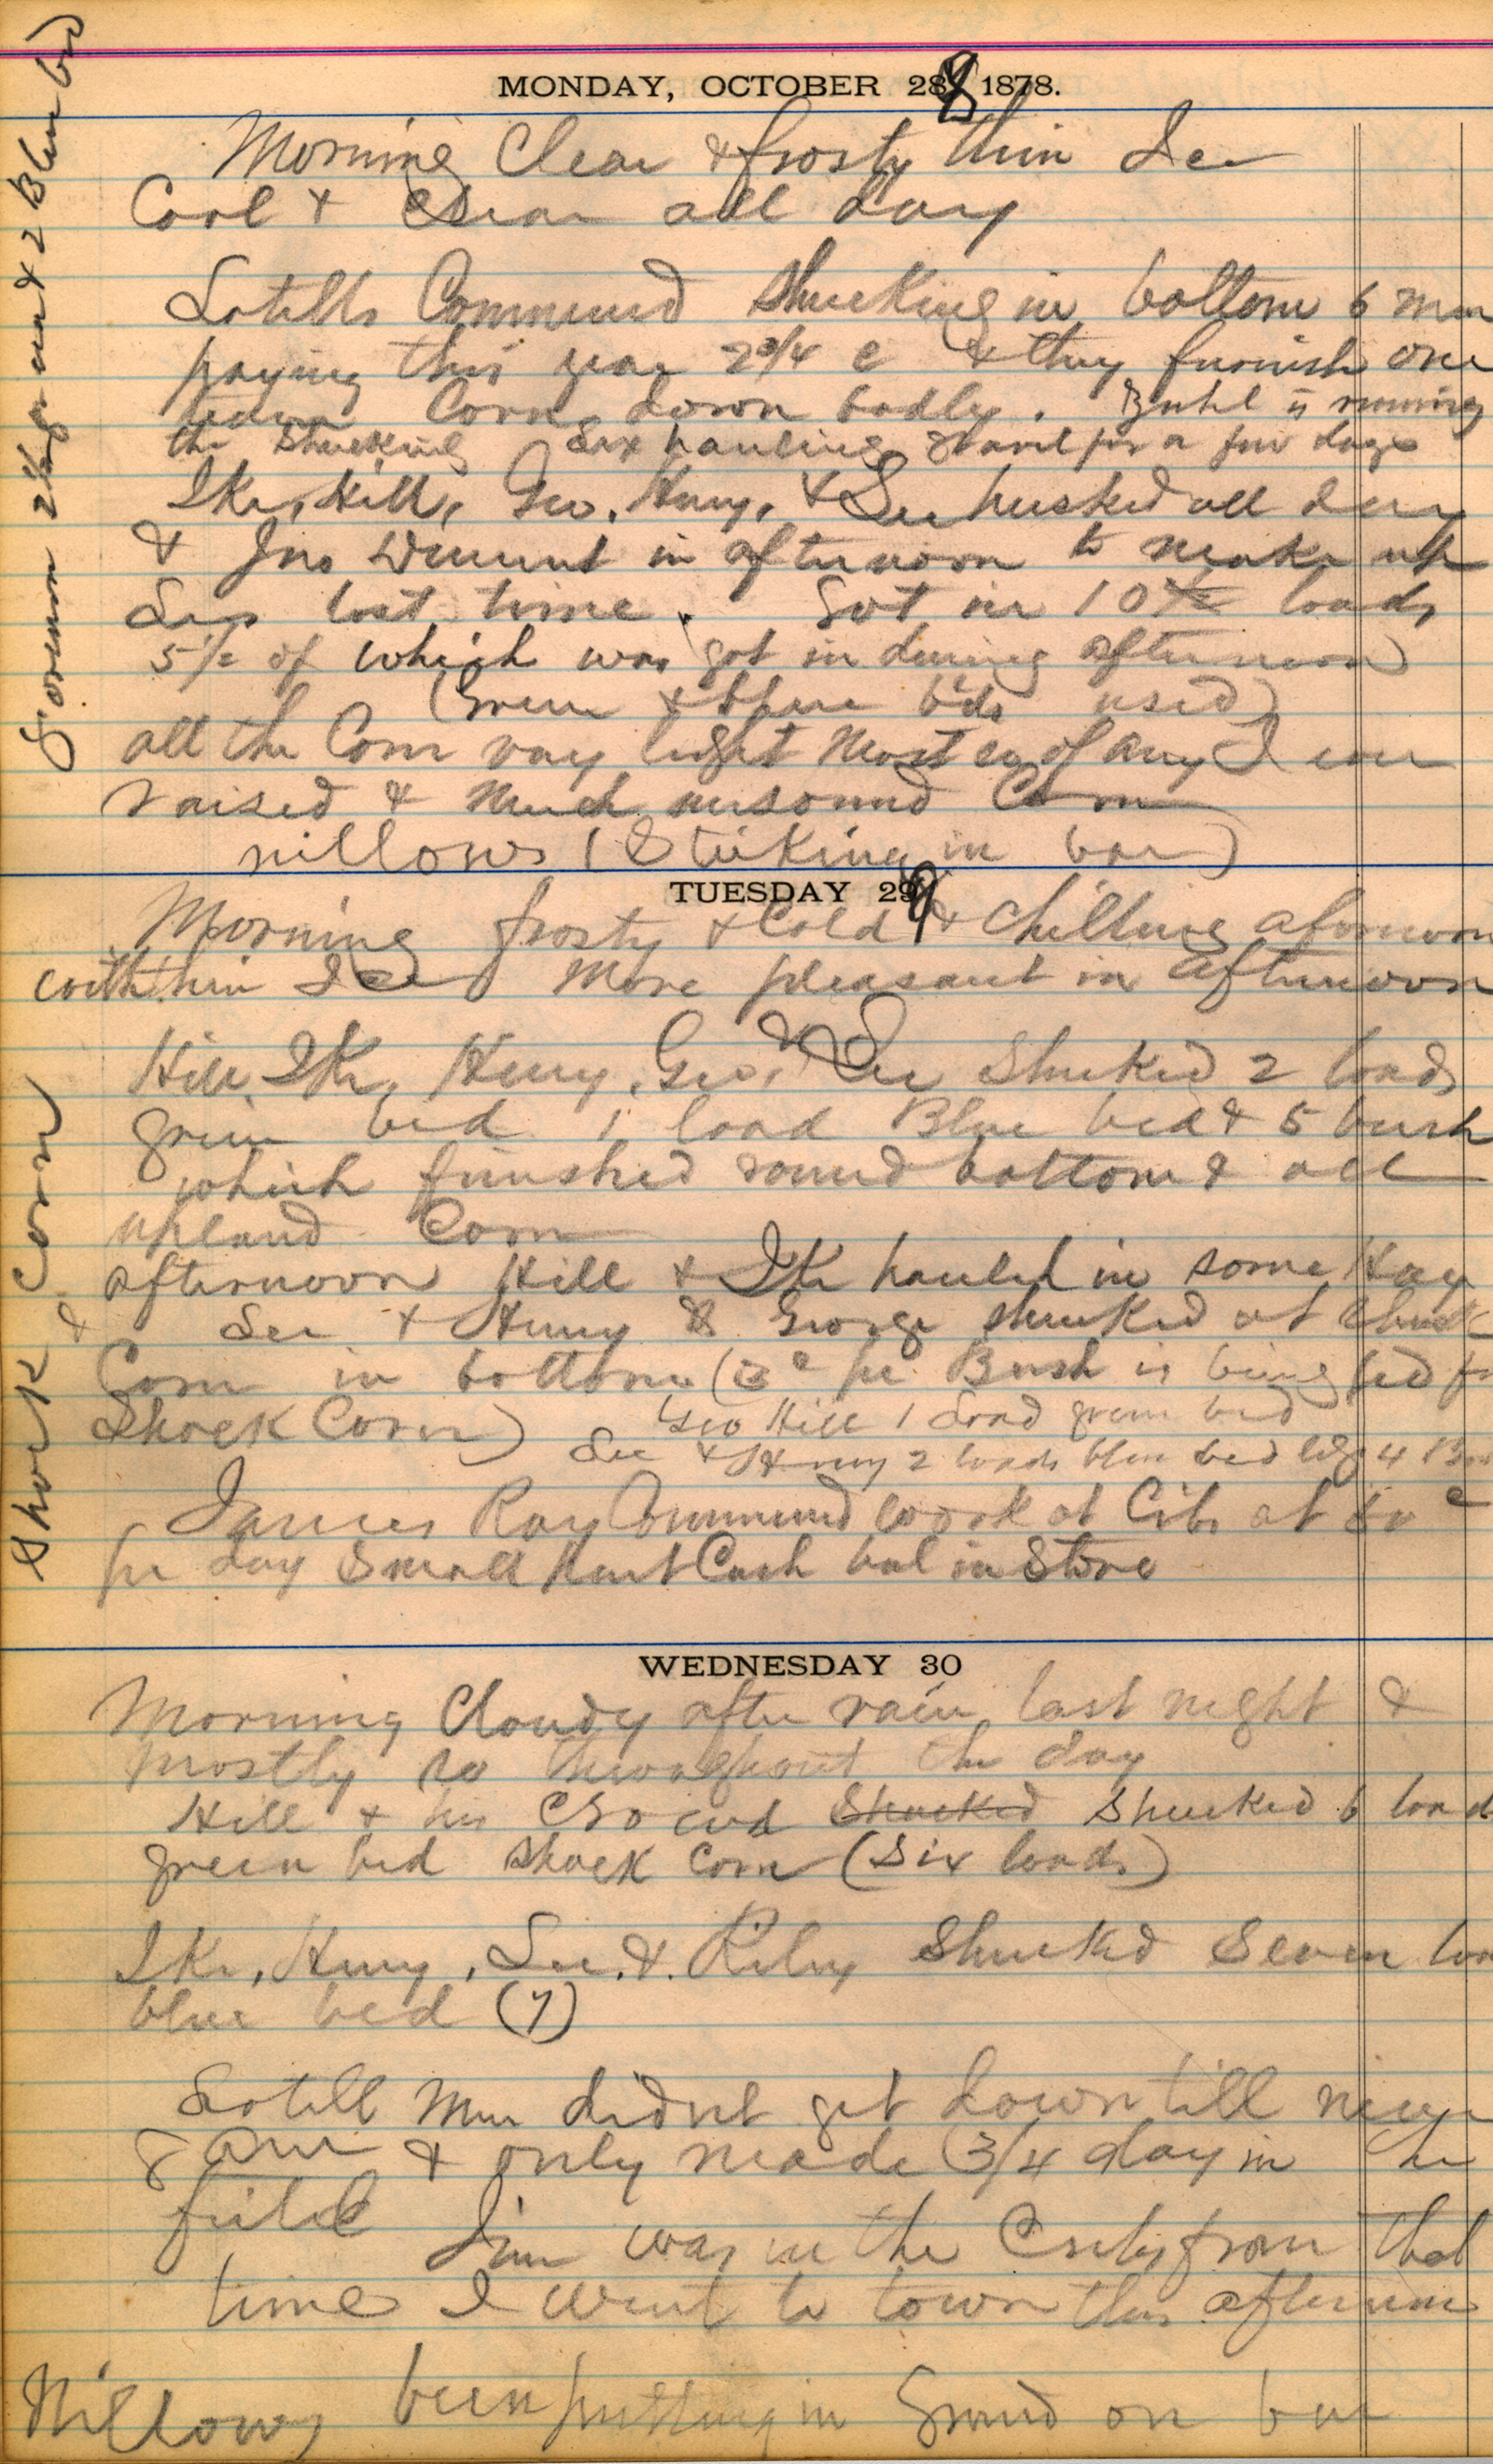 MONDAY, OCTOBER 28 1878.
Morning Clear & frosty thin Ice
Cool & Clear all day
Lotills Commencd Shucking in bottom 6 men
paying this year 2 3/4 c & they furnish one
team Corn down badly. Buhl is running
the Shucking Sax hauling Gravel for a few days
Ike, Hill, Geo. Henry, & Lee husked all day
& Jno Dement in afternoon to make up
Lees lost time. Got in 10 1/2 loads
5 1/2 of which was got in during afternoon
(Green & blue bds used)
all the Corn very light Most so of any I ever
raised & Much unsound Corn
willows (Sticking in bar)
TUESDAY 29
Morning frosty & Cold & Chilling aforenoon
with thin Ice More pleasant in afternoon
Hill, Ike, Henry, Geo, & Lee Shucked 2 loads
green bed 1 load Blue bed & 5 bush
which finished round bottom & all
upland Corn
afternoon Hill & Ike hauled in some Hay
Lee & Henry & George shucked at Shock
Corn in bottom (3c per Bush is being pd for
Shock Corn) Geo Hill 1 Load green bed
Lee & Henry 2 loads blue bed 4
James Ray Commencd work at Cribs at 80c
per day Small part Cash bal in Store
WEDNESDAY 30
Morning Cloudy after rain last night &
mostly so throughout the day
Hill & his Crowd Shucked Shucked 6 load
green bed shock corn (Six loads)
Ike, Henry, Lee, & Riley Shucked Seven loa
blue bed (7)
Lotill Men didnt get down till nigh
8 am & only made 3/4 day in the
field Jim was in the Cribs from that
time I went to town this afternoon
Willows been putting in Ground on bar
Foreman 2 & 2 Blue bds
Shock & Corn